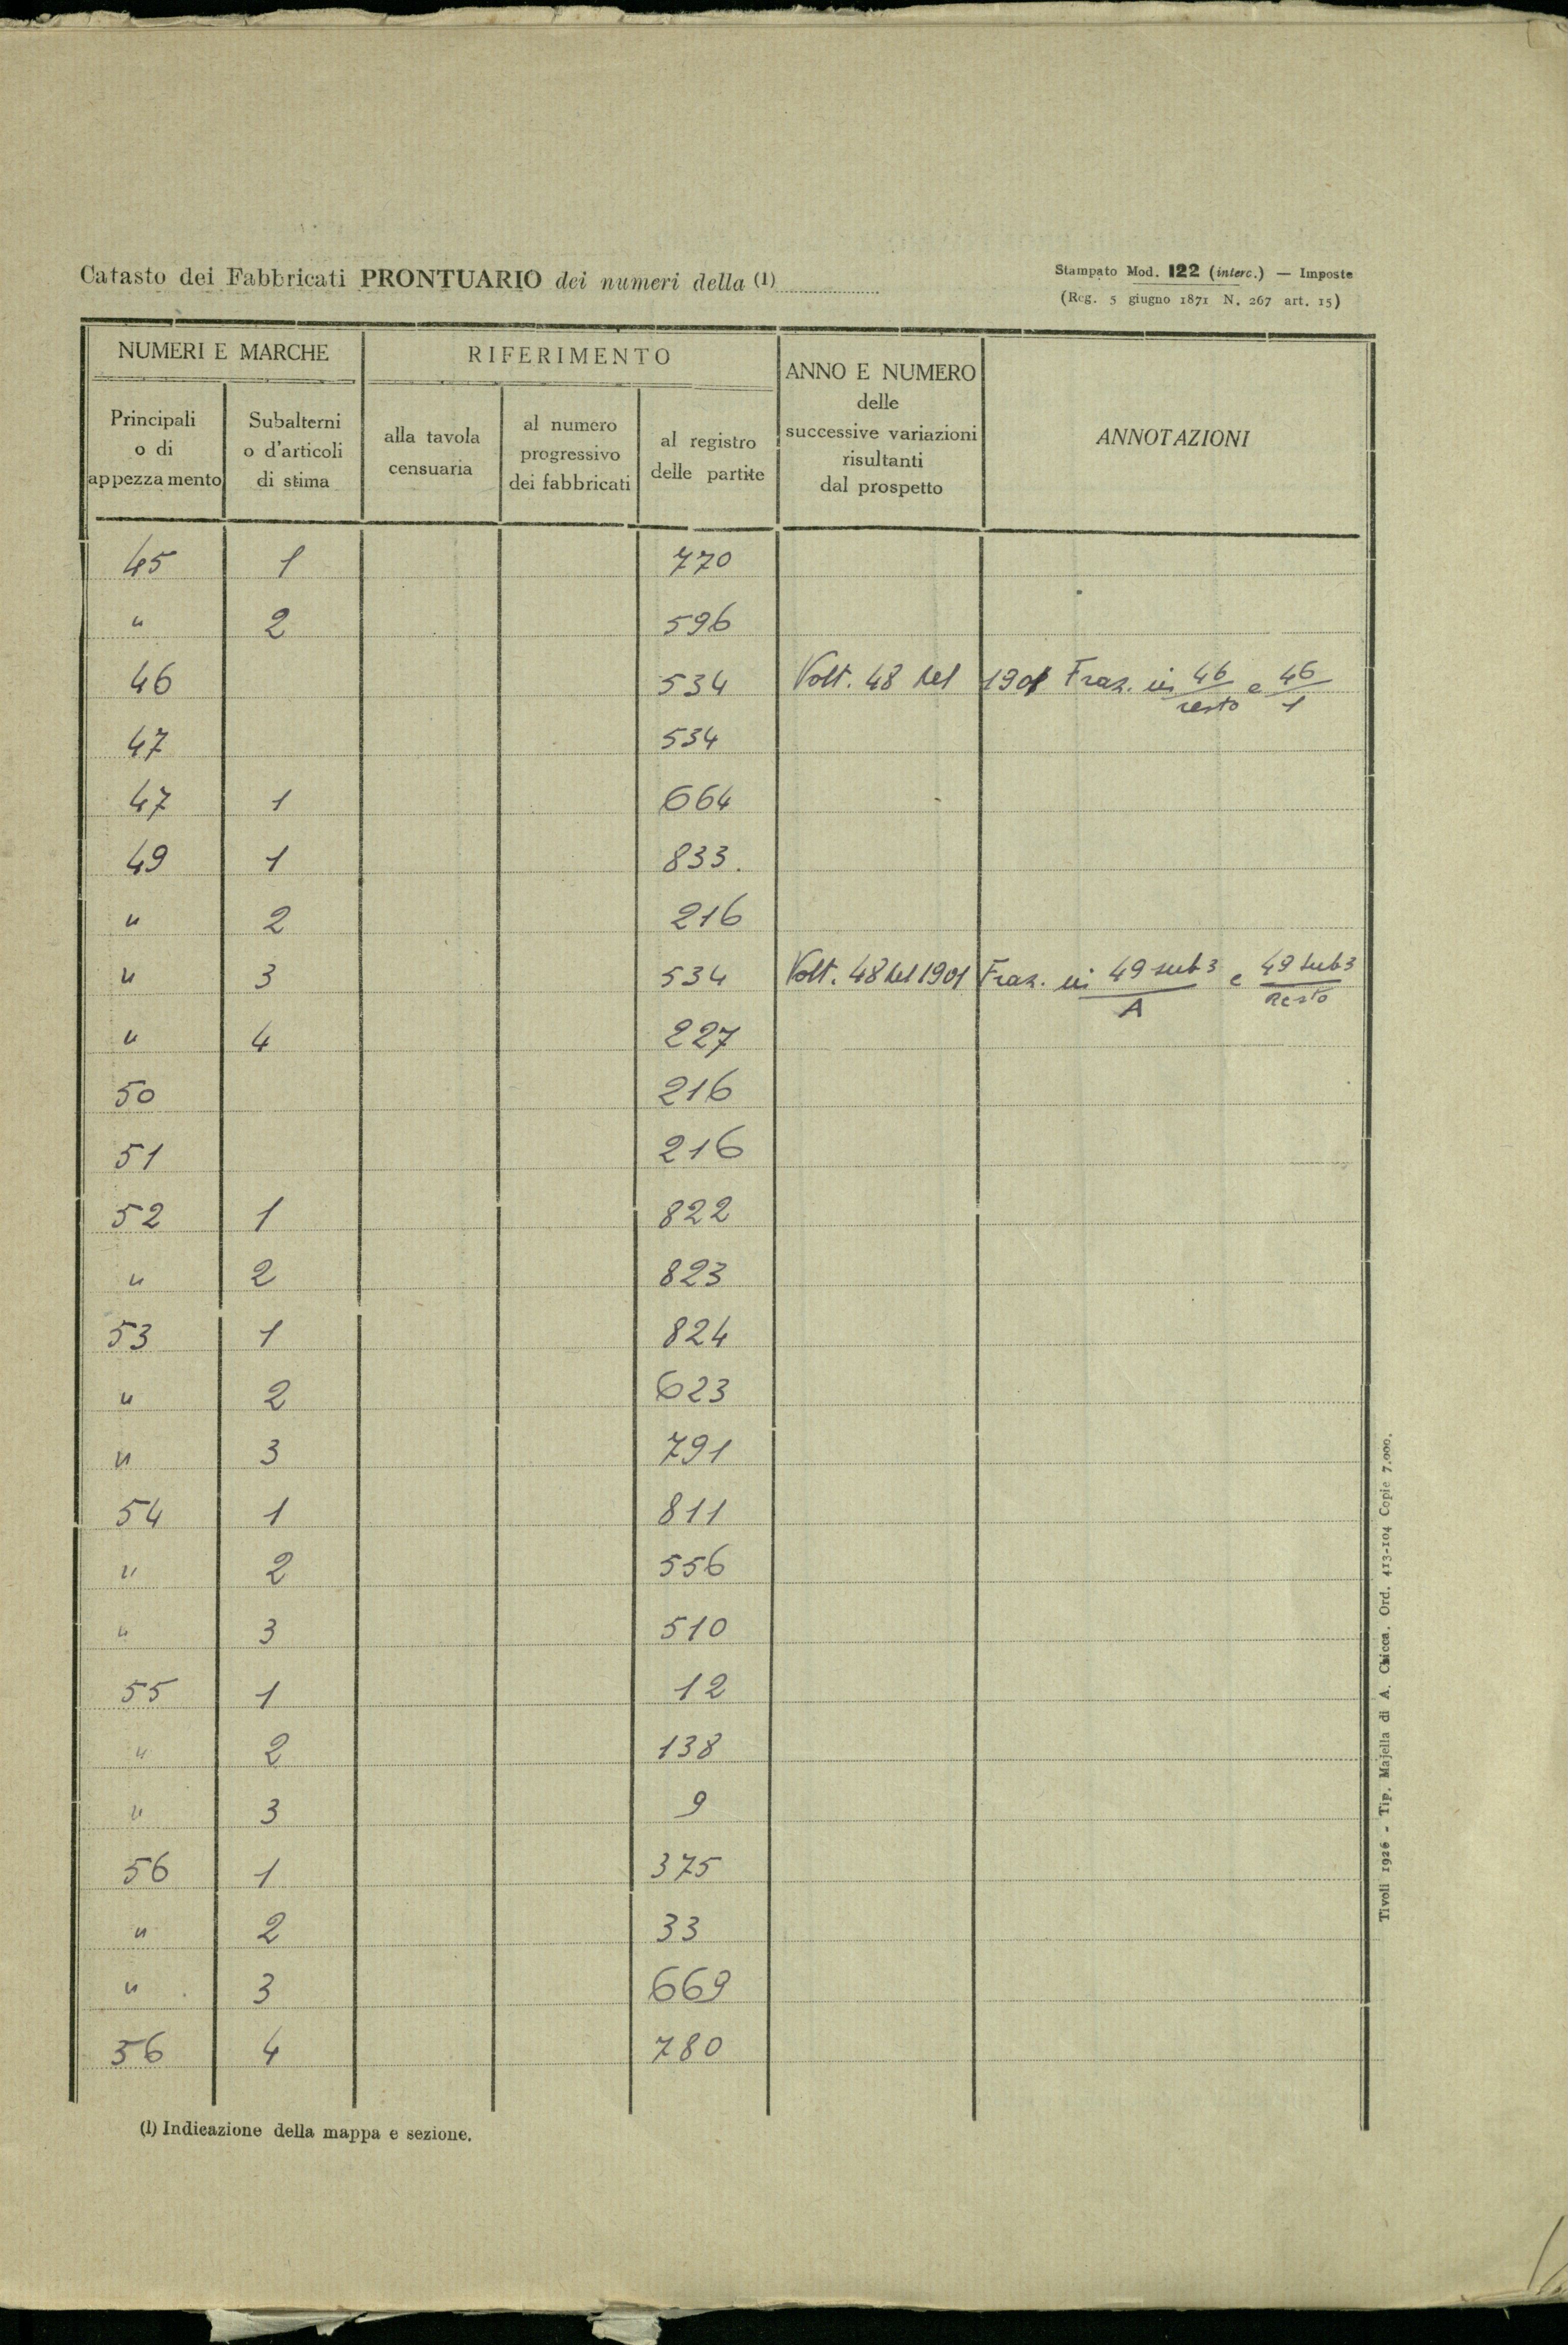 Catasto dei Fabbricati PRONTUARIO dei numeri della (1)
Stampato Mod. 122 (interc.) — Imposte
(Reg. 5 giugno 1871 N. 267 art. 15)
NUMERI E MARCHE
RIFERIMENTO
ANNO E NUMERO
delle
successive variazioni
risultanti
dal prospetto
ANNOTAZIONI
Principali
o di
appezzamento
Subalterni
o d'articoli
di stima
alla tavola
censuaria
al numero
progressivo
dei fabbricati
al registro
delle partite
45 1 770
" 2 596
46 534 Volt. 48 del 1901 Fraz. in 46/resto e 46/1
47 534
47 1 664
49 1 833.
" 2 216
" 3 534 Volt. 48 del 1901 Fraz. in 49 sub 3/A e 49 sub 3/resto
" 4 227
50 216
51 216
52 1 822
" 2 823
53 1 824
" 2 623
" 3 791
54 1 811
" 2 556
" 3 510
55 1 12
" 2 138
" 3 9
56 1 375
" 2 33
" 3 669
56 4 780
(1) Indicazione della mappa e sezione.
Tivoli 1926 - Tip. Majella di A. Chicca. Ord. 413-104 Copie 7.000.